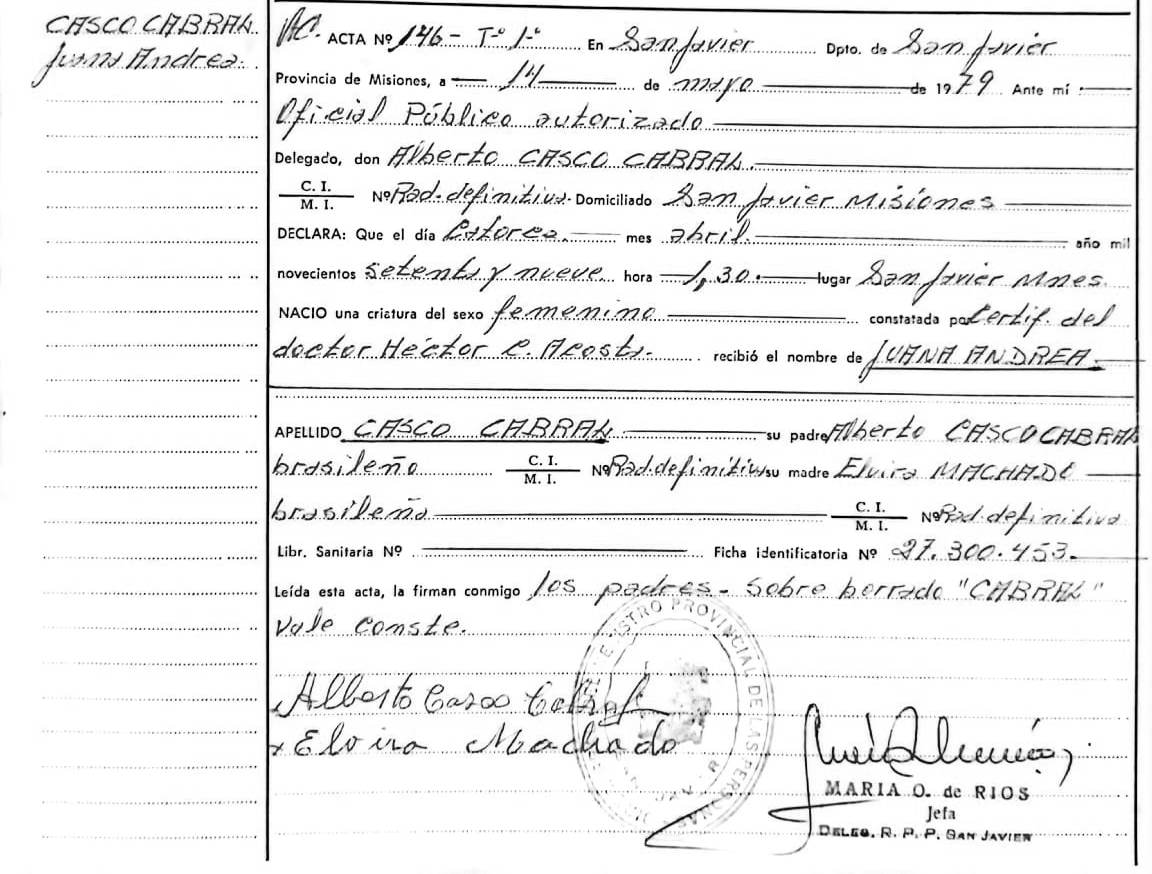 CASCO CABRAL
Juana Andrea.
AC. ACTA Nº 146- Tº 1-º En San Javier Dpto. de San Javier
Provincia de Misiones, a 14 de mayo de 1979 Ante mí
Oficial Público autorizado
Delegado, don Alberto CASCO CABRAL.
C. I.
M. I. Nº Rad. definitiva. Domiciliado San Javier Misiones
DECLARA: Que el día Catorce. mes abril. año mil
novecientos setenta y nueve hora 1,30. lugar San Javier Mnes.
NACIO una criatura del sexo femenino constatada por Certif. del
doctor Héctor C. Acosta. recibió el nombre de JUANA ANDREA.
APELLIDO CASCO CABRAL su padre Alberto CASCO CABRAL
brasileño C. I.
M. I. Nº Rad. definitiva su madre Elvira MACHADO
brasileña C. I.
M. I. Nº Rad. definitiva
Libr. Sanitaria Nº Ficha identificatoria Nº 27.300.453.
Leída esta acta, la firman conmigo los padres- Sobre borrado "CABRAL"
Vale conste.
REGISTRO PROVINCIAL DE LAS PERSONAS
Alberto Casco Cabral
x Elvira Machado
MARIA O. de RIOS
Jefa
DELEG. R. P. P. SAN JAVIER